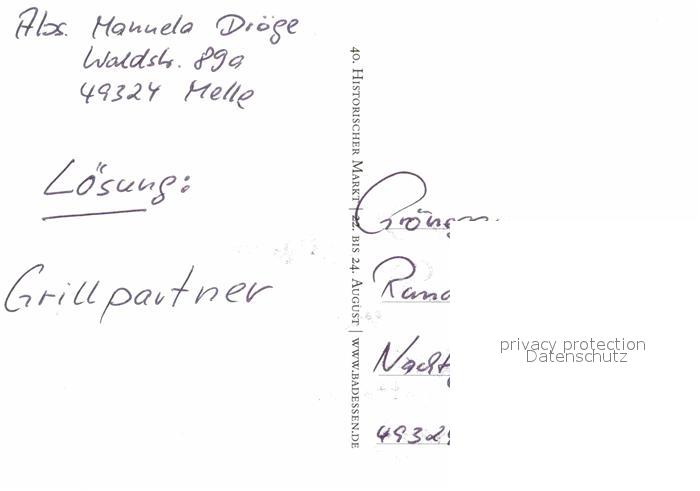 Abs. Manuela Dröge
Waldstr. 89a
49324 Melle
Lösung:
Grillpartner
40. Historischer Markt | 22. bis 24. August | www.badessen.de
privacy protection
Datenschutz